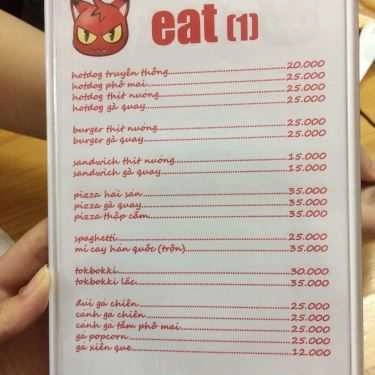 eat (1)
hotdog truyền thống 20.000
hotdog phô mai 25.000
hotdog thịt nướng 25.000
hotdog gà quay 25.000
burger thịt nướng 25.000
burger gà quay 25.000
sandwich thịt nướng 15.000
sandwich gà quay 15.000
pizza hải sản 35.000
pizza gà quay 35.000
pizza thập cẩm 35.000
spaghetti 25.000
mì cay hàn quốc (trộn) 35.000
tokbokki 30.000
tokbokki lắc 35.000
đùi gà chiên 25.000
cánh gà chiên 25.000
cánh gà tẩm phô mai 25.000
gà popcorn 25.000
gà xiên que 12.000